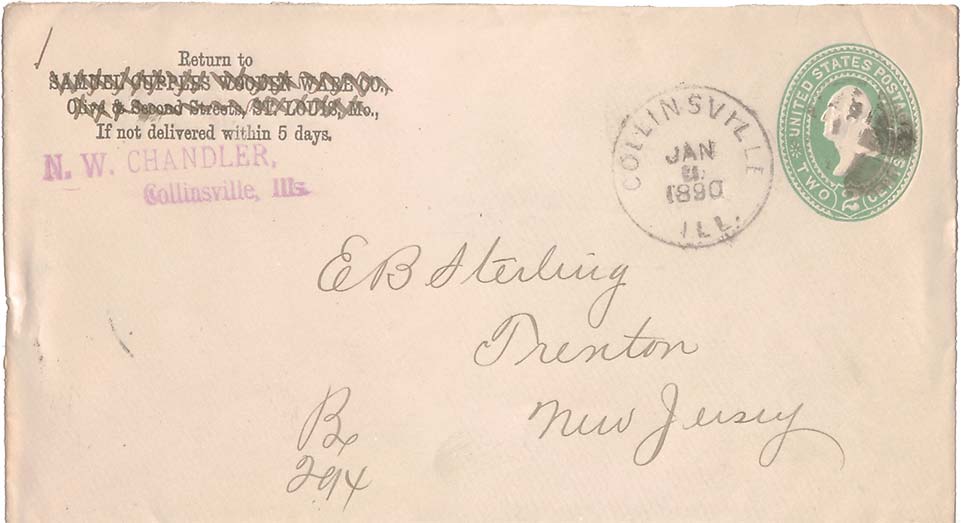 Return to
SAMUEL CUPPLES WOODEN WARE CO.,
Olive & Second Streets, ST. LOUIS, Mo.,
If not delivered within 5 days.
N. W. CHANDLER,
Collinsville, Ills
COLLINSVILLE
JAN
1890
ILL.
UNITED STATES POSTAGE
TWO 2 CENTS
E B Sterling
Trenton
New Jersey
Bx
294